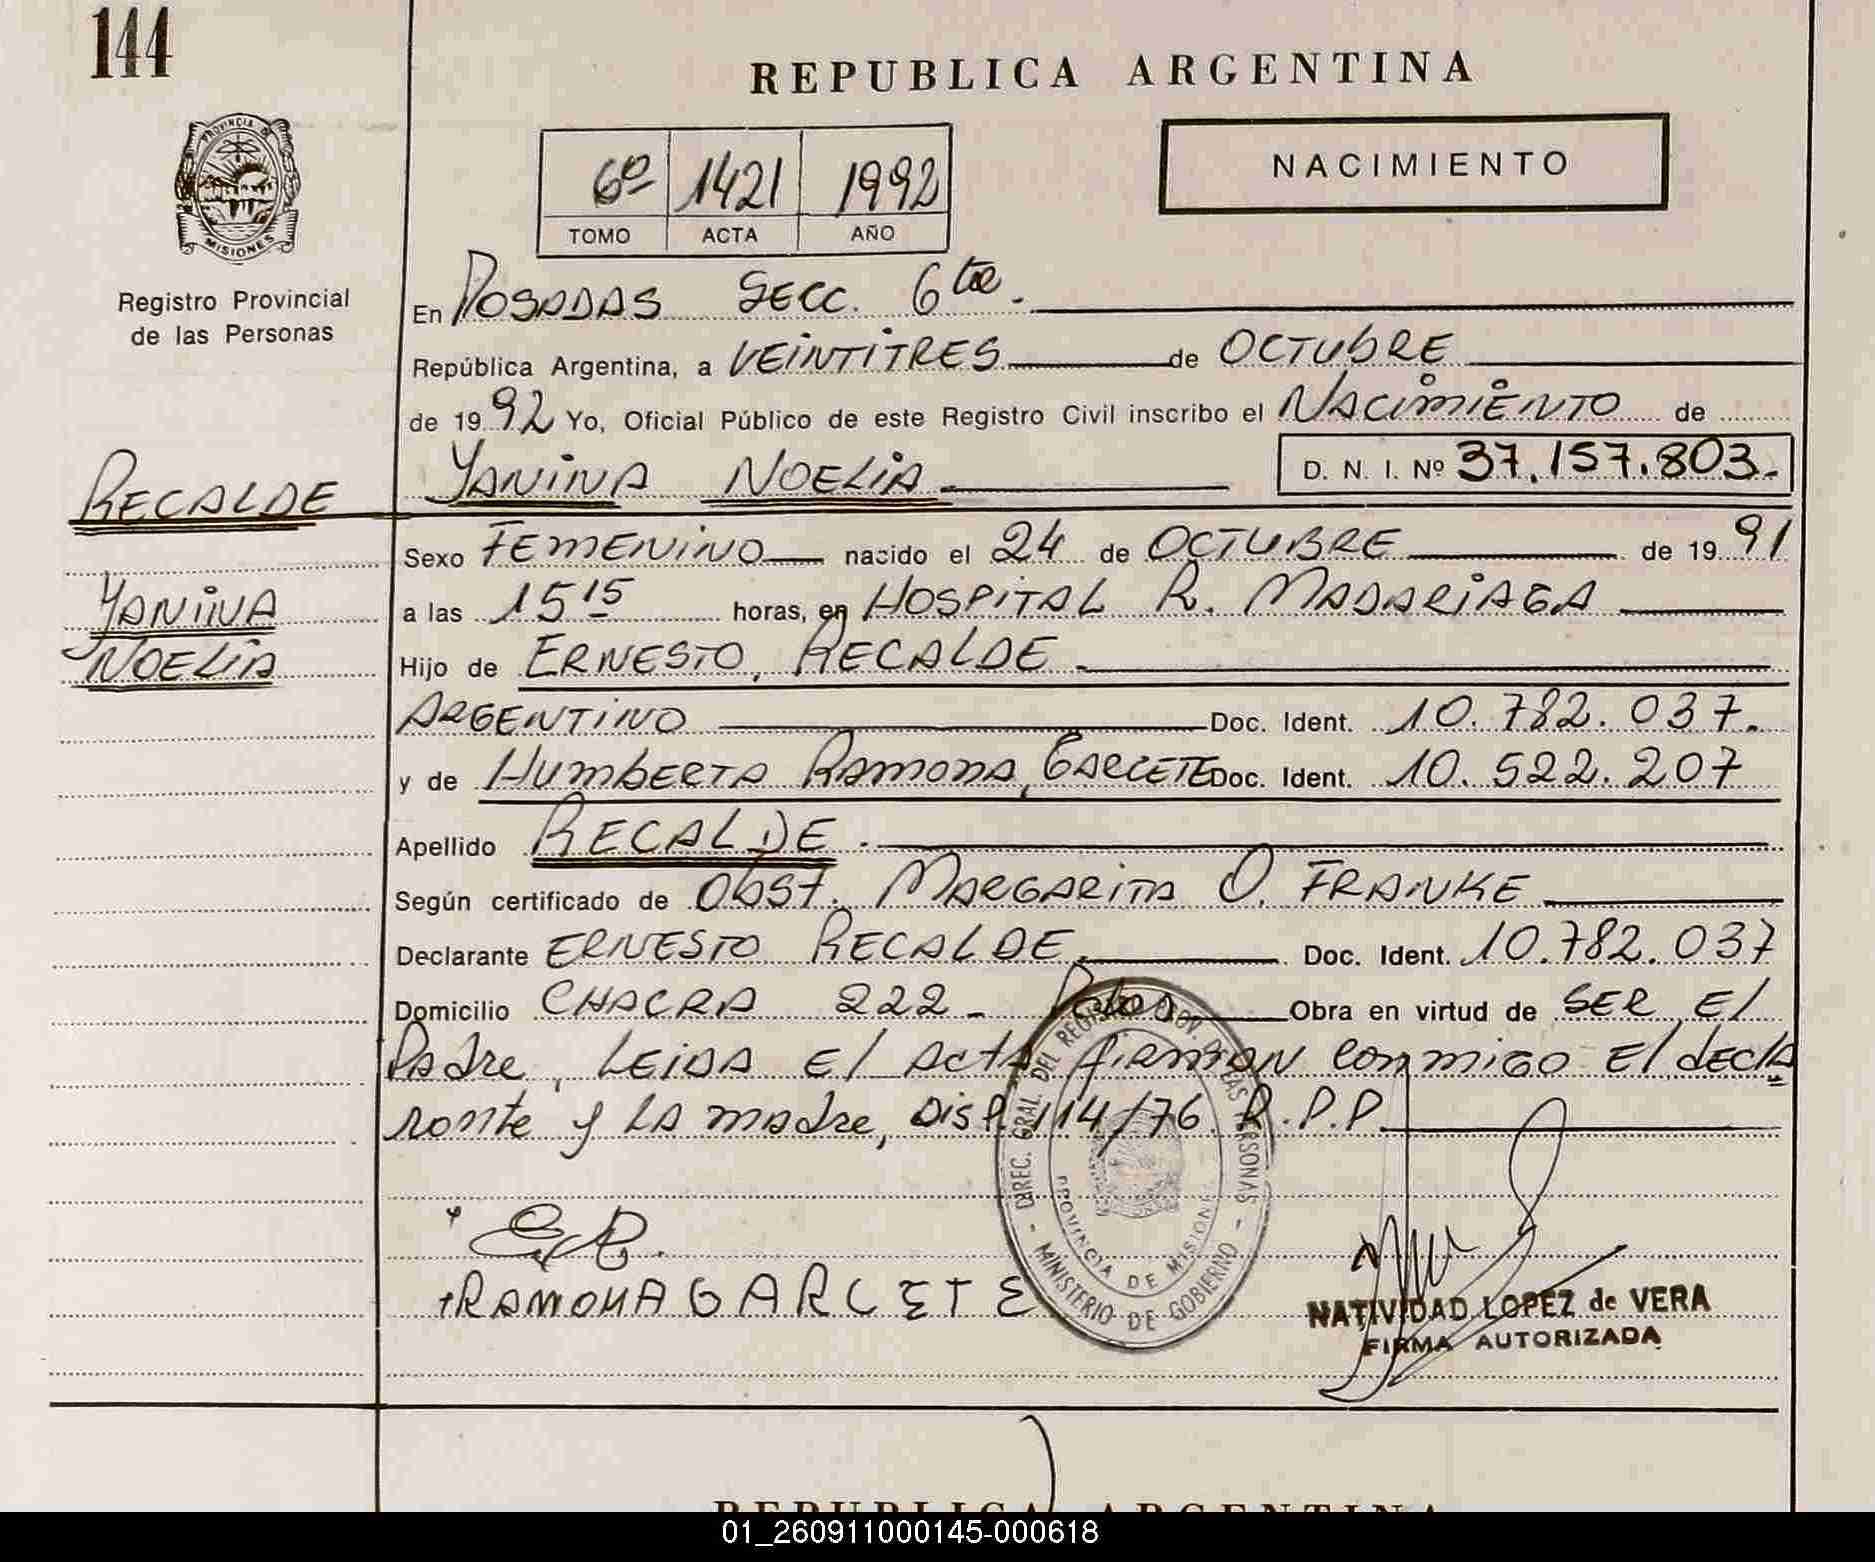 144
REPUBLICA ARGENTINA
PROVINCIA DE
MISIONES
Registro Provincial
de las Personas
6º 1421 1992
TOMO ACTA AÑO
NACIMIENTO
En POSADAS SECC. 6ta.
República Argentina, a VEINTITRES de OCTUBRE
de 1992 Yo, Oficial Público de este Registro Civil inscribo el NACIMIENTO de
YANINA NOELIA D. N. I. Nº 37.157.803.-
RECALDE
YANINA
NOELIA
Sexo FEMENINO nacido el 24 de OCTUBRE de 1991
a las 15 15 horas, en HOSPITAL R. MADARIAGA
Hijo de ERNESTO, RECALDE
ARGENTINO Doc. Ident. 10.782.037.
y de HUMBERTA RAMONA, GARCETE Doc. Ident. 10.522.207
Apellido RECALDE.
Según certificado de Obst. MARGARITA O. FRANKE
Declarante ERNESTO RECALDE Doc. Ident. 10.782.037
Domicilio CHACRA 222 - Obra en virtud de SER El
Padre, LEIDA El ActA firman conmigo El declA
rante y LA madre, Disp. 114/76 R.P.P.
DIREC. GRAL. DEL REGISTRO PROV. DE LAS PERSONAS
PROVINCIA DE MISIONES
- MINISTERIO DE GOBIERNO -
E.R.
RAMONA GARCETE
NATIVIDAD LOPEZ de VERA
FIRMA AUTORIZADA
REPUBLICA ARGENTINA
01_260911000145-000618